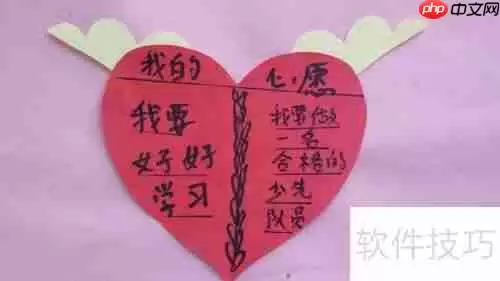 php中文网
我的心愿
我要
好好
学习
我要做
一名
合格的
少先
队员
软件技巧